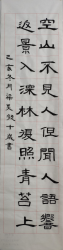 空山不見人但聞人語響
返景入深林復照青苔上
冬月 十歲書